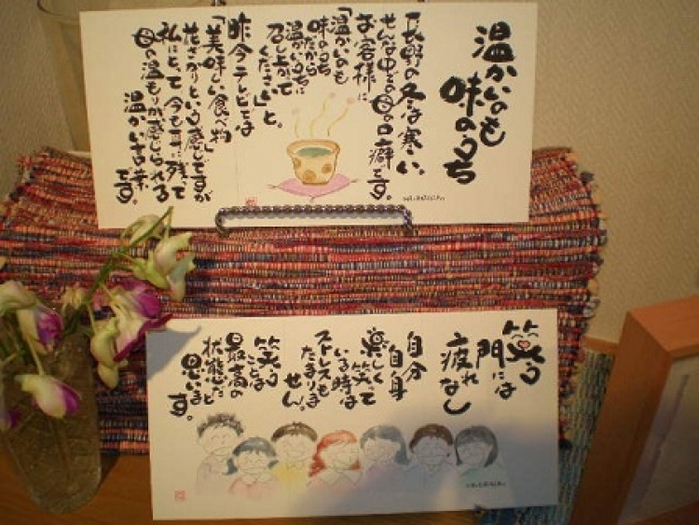 温かいのも
味のうち
長野の冬は寒い。
そんな中での母の口癖です。
お客様に
「温かいのも
味のうち
だから
温かいうちに
召し上がって
ください」と。
昨今テレビでは
「美味しい食べ物」
花ざかりという感じですが
私にとって今も耳に残って
母の温もりが感じられる
温かい言葉
です。
笑う
門には
疲れ
なし
自分
自身
楽しく笑って
いる時は
ストレスも
たまりま
せん。
笑う
ことは
最高の
状態だと
思います。